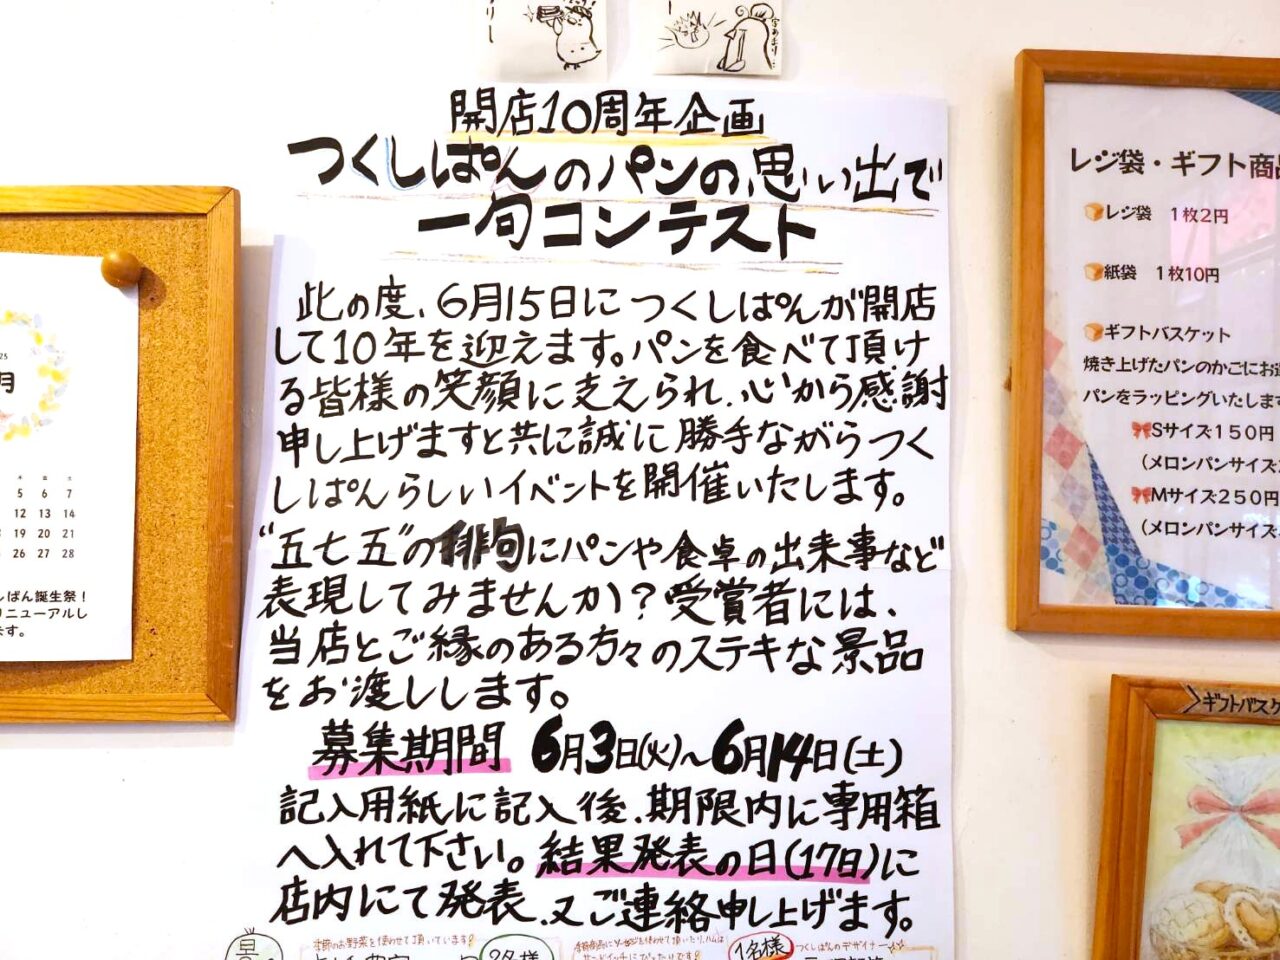 開店10周年企画
つくしぱんのパンの思い出で
一句コンテスト
此の度、6月15日につくしぱんが開店
して10年を迎えます。パンを食べて頂け
る皆様の笑顔に支えられ、心から感謝
申し上げますと共に誠に勝手ながらつく
しぱんらしいイベントを開催いたします。
“五七五”の俳句にパンや食卓の出来事など
表現してみませんか?受賞者には、
当店とご縁のある方々のステキな景品
をお渡しします。
募集期間 6月3日(火)~6月14日(土)
記入用紙に記入後、期限内に専用箱
へ入れて下さい。結果発表の日(17日)に
店内にて発表、又ご連絡申し上げます。
季節のお野菜を使わせて頂いています!
2名様
1名様
つくしぱんのデザイナー
月
5 6 7
12 13 14
19 20 21
26 27 28
しぱん誕生祭!
リニューアルし
ます。
レジ袋・ギフト商品
レジ袋 1枚2円
紙袋 1枚10円
ギフトバスケット
焼き上げたパンのかごにお
パンをラッピングいたします
Sサイズ150円
(メロンパンサイズ
Mサイズ250円
(メロンパンサイズ
ギフトバスケ